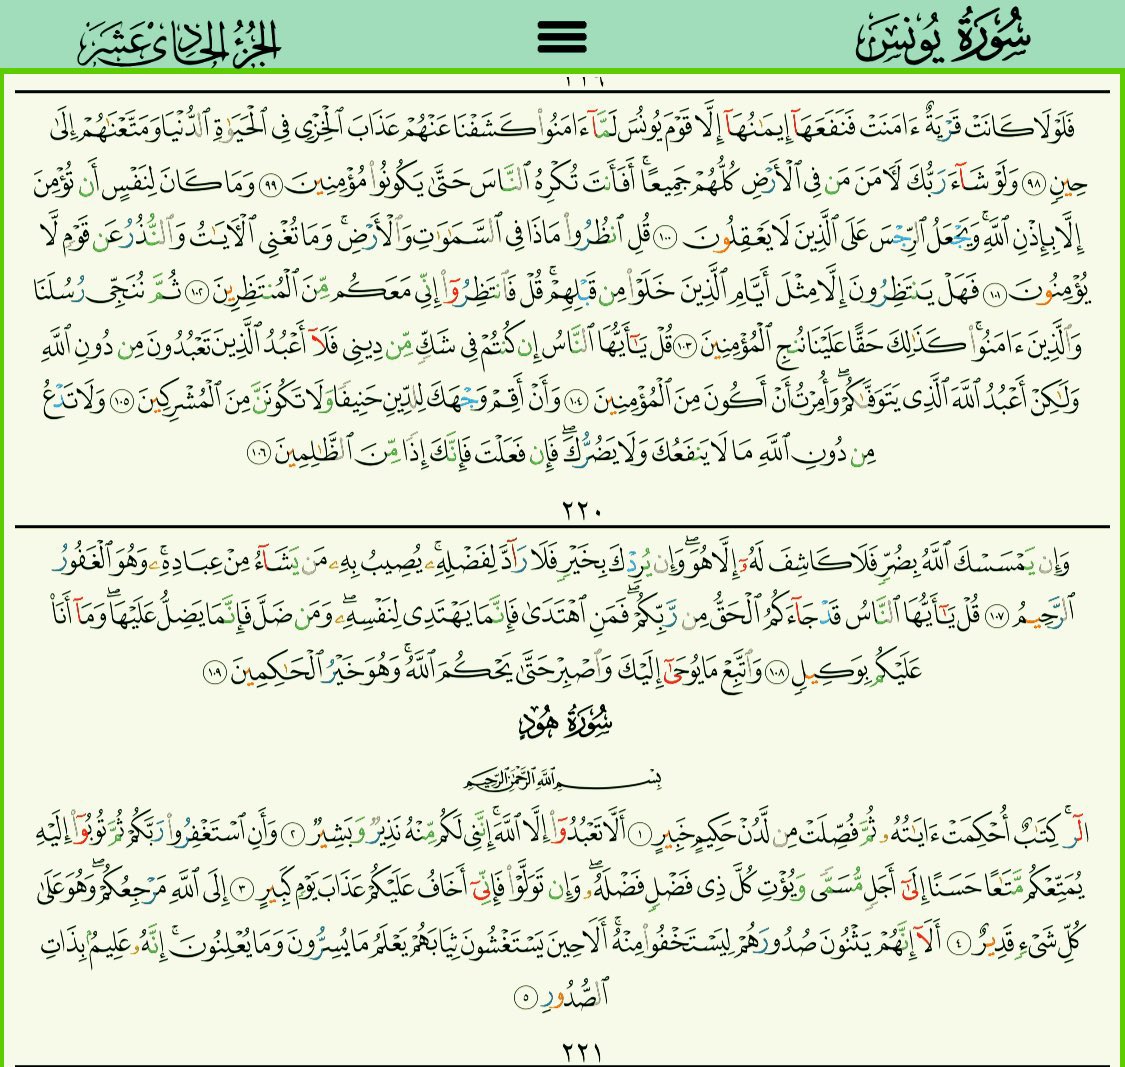 سُورَةُ يُونُسَ
الجُزْءُ الحَادِي عَشَرَ
فَلَوۡلَا كَانَتۡ قَرۡيَةٌ ءَامَنَتۡ فَنَفَعَهَآ إِيمَٰنُهَآ إِلَّا قَوۡمَ يُونُسَ لَمَّآ ءَامَنُواْ كَشَفۡنَا عَنۡهُمۡ عَذَابَ ٱلۡخِزۡيِ فِي ٱلۡحَيَوٰةِ ٱلدُّنۡيَا وَمَتَّعۡنَٰهُمۡ إِلَىٰ
حِينٖ ٩٨ وَلَوۡ شَآءَ رَبُّكَ لَأٓمَنَ مَن فِي ٱلۡأَرۡضِ كُلُّهُمۡ جَمِيعًاۚ أَفَأَنتَ تُكۡرِهُ ٱلنَّاسَ حَتَّىٰ يَكُونُواْ مُؤۡمِنِينَ ٩٩ وَمَا كَانَ لِنَفۡسٍ أَن تُؤۡمِنَ
إِلَّا بِإِذۡنِ ٱللَّهِۚ وَيَجۡعَلُ ٱلرِّجۡسَ عَلَى ٱلَّذِينَ لَا يَعۡقِلُونَ ١٠٠ قُلِ ٱنظُرُواْ مَاذَا فِي ٱلسَّمَٰوَٰتِ وَٱلۡأَرۡضِۚ وَمَا تُغۡنِي ٱلۡأٓيَٰتُ وَٱلنُّذُرُ عَن قَوۡمٖ لَّا
يُؤۡمِنُونَ ١٠١ فَهَلۡ يَنتَظِرُونَ إِلَّا مِثۡلَ أَيَّامِ ٱلَّذِينَ خَلَوۡاْ مِن قَبۡلِهِمۡۚ قُلۡ فَٱنتَظِرُوٓاْ إِنِّي مَعَكُم مِّنَ ٱلۡمُنتَظِرِينَ ١٠٢ ثُمَّ نُنَجِّي رُسُلَنَا
وَٱلَّذِينَ ءَامَنُواْۚ كَذَٰلِكَ حَقًّا عَلَيۡنَا نُنجِ ٱلۡمُؤۡمِنِينَ ١٠٣ قُلۡ يَٰٓأَيُّهَا ٱلنَّاسُ إِن كُنتُمۡ فِي شَكّٖ مِّن دِينِي فَلَآ أَعۡبُدُ ٱلَّذِينَ تَعۡبُدُونَ مِن دُونِ ٱللَّهِ
وَلَٰكِنۡ أَعۡبُدُ ٱللَّهَ ٱلَّذِي يَتَوَفَّىٰكُمۡۖ وَأُمِرۡتُ أَنۡ أَكُونَ مِنَ ٱلۡمُؤۡمِنِينَ ١٠٤ وَأَنۡ أَقِمۡ وَجۡهَكَ لِلدِّينِ حَنِيفٗا وَلَا تَكُونَنَّ مِنَ ٱلۡمُشۡرِكِينَ ١٠٥ وَلَا تَدۡعُ
مِن دُونِ ٱللَّهِ مَا لَا يَنفَعُكَ وَلَا يَضُرُّكَۖ فَإِن فَعَلۡتَ فَإِنَّكَ إِذٗا مِّنَ ٱلظَّٰلِمِينَ ١٠٦
٢٢٠
وَإِن يَمۡسَسۡكَ ٱللَّهُ بِضُرّٖ فَلَا كَاشِفَ لَهُۥٓ إِلَّا هُوَۖ وَإِن يُرِدۡكَ بِخَيۡرٖ فَلَا رَآدَّ لِفَضۡلِهِۦۚ يُصِيبُ بِهِۦ مَن يَشَآءُ مِنۡ عِبَادِهِۦۚ وَهُوَ ٱلۡغَفُورُ
ٱلرَّحِيمُ ١٠٧ قُلۡ يَٰٓأَيُّهَا ٱلنَّاسُ قَدۡ جَآءَكُمُ ٱلۡحَقُّ مِن رَّبِّكُمۡۖ فَمَنِ ٱهۡتَدَىٰ فَإِنَّمَا يَهۡتَدِي لِنَفۡسِهِۦۖ وَمَن ضَلَّ فَإِنَّمَا يَضِلُّ عَلَيۡهَاۖ وَمَآ أَنَا۠
عَلَيۡكُم بِوَكِيلٖ ١٠٨ وَٱتَّبِعۡ مَا يُوحَىٰٓ إِلَيۡكَ وَٱصۡبِرۡ حَتَّىٰ يَحۡكُمَ ٱللَّهُۚ وَهُوَ خَيۡرُ ٱلۡحَٰكِمِينَ ١٠٩
سُورَةُ هُودٍ
بِسۡمِ ٱللَّهِ ٱلرَّحۡمَٰنِ ٱلرَّحِيمِ
الٓرۚ كِتَٰبٌ أُحۡكِمَتۡ ءَايَٰتُهُۥ ثُمَّ فُصِّلَتۡ مِن لَّدُنۡ حَكِيمٍ خَبِيرٍ ١ أَلَّا تَعۡبُدُوٓاْ إِلَّا ٱللَّهَۚ إِنَّنِي لَكُم مِّنۡهُ نَذِيرٞ وَبَشِيرٞ ٢ وَأَنِ ٱسۡتَغۡفِرُواْ رَبَّكُمۡ ثُمَّ تُوبُوٓاْ إِلَيۡهِ
يُمَتِّعۡكُم مَّتَٰعًا حَسَنًا إِلَىٰٓ أَجَلٖ مُّسَمّٗى وَيُؤۡتِ كُلَّ ذِي فَضۡلٖ فَضۡلَهُۥۖ وَإِن تَوَلَّوۡاْ فَإِنِّيٓ أَخَافُ عَلَيۡكُمۡ عَذَابَ يَوۡمٖ كَبِيرٍ ٣ إِلَى ٱللَّهِ مَرۡجِعُكُمۡۖ وَهُوَ عَلَىٰ
كُلِّ شَيۡءٖ قَدِيرٌ ٤ أَلَآ إِنَّهُمۡ يَثۡنُونَ صُدُورَهُمۡ لِيَسۡتَخۡفُواْ مِنۡهُۚ أَلَا حِينَ يَسۡتَغۡشُونَ ثِيَابَهُمۡ يَعۡلَمُ مَا يُسِرُّونَ وَمَا يُعۡلِنُونَۚ إِنَّهُۥ عَلِيمُۢ بِذَاتِ
ٱلصُّدُورِ ٥
٢٢١